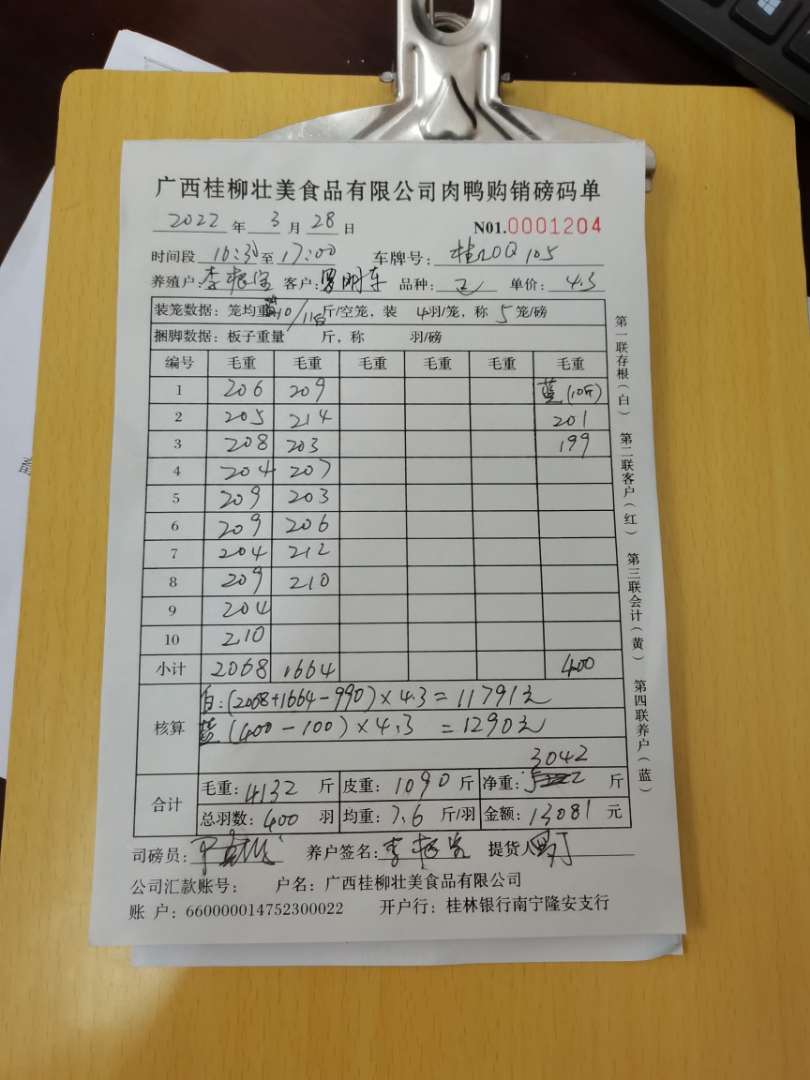 广西桂柳壮美食品有限公司肉鸭购销磅码单
2022 年 3 月 28 日 N01.0001204
时间段 16:30 至 17:00 车牌号: 桂 105
养殖户: 李 客户: 罗明车 品种: 单价: 4.3
装笼数据: 笼均重 蓝10/11白 斤/空笼, 装 4羽/笼, 称 5 笼/磅
捆脚数据: 板子重量 斤, 称 羽/磅
编号 毛重 毛重 毛重 毛重 毛重 毛重
1 206 209 蓝(10斤)
2 205 214 201
3 208 203 199
4 204 207
5 209 203
6 209 206
7 204 212
8 209 210
9 204
10 210
小计 2068 1664 400
核算 白:(2068+1664-990)×4.3=11791元
蓝(400-100)×4.3 =1290元
3042
合计 毛重: 4132 斤 皮重: 1090 斤 净重: 斤
总羽数: 400 羽 均重: 7.6 斤/羽 金额: 13081 元
司磅员: 养户签名: 李 提货人
公司汇款账号: 户名: 广西桂柳壮美食品有限公司
账 户: 660000014752300022 开户行: 桂林银行南宁隆安支行
第一联存根(白) 第二联客户(红) 第三联会计(黄) 第四联养户(蓝)